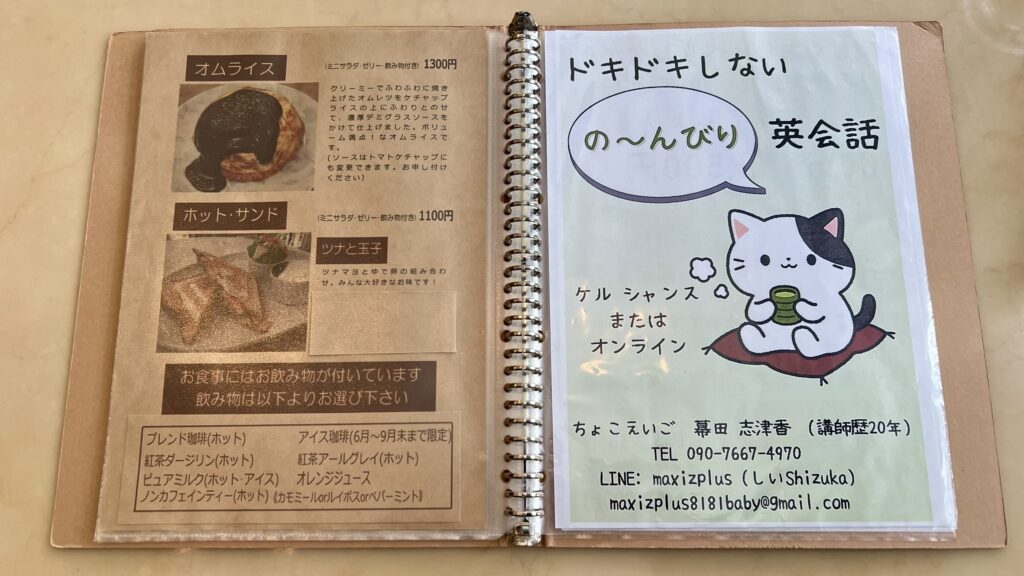 オムライス
(ミニサラダ・ゼリー・飲み物付き) 1300円
クリーミーでふわふわに焼き
上げたオムレツをケチャップ
ライスの上にふわりとのせ
て、濃厚デミグラスソースを
かけて仕上げました。ボリュ
ーム満点!なオムライスで
す。
(ソースはトマトケチャップに
も変更できます。お申し付け
ください)
ホット・サンド
(ミニサラダ・ゼリー・飲み物付き) 1100円
ツナと玉子
ツナマヨとゆで卵の組み合わ
せ、みんな大好きなお味です!
お食事にはお飲み物が付いています
飲み物は以下よりお選び下さい
ブレンド珈琲(ホット) アイス珈琲(6月～9月末まで限定)
紅茶ダージリン(ホット) 紅茶アールグレイ(ホット)
ピュアミルク(ホット・アイス) オレンジジュース
ノンカフェインティー(ホット)《カモミールorルイボスorペパーミント》
ドキドキしない
の～んびり
英会話
ケル シャンス
または
オンライン
ちょこえいご 幕田 志津香 (講師歴20年)
TEL 090-7667-4970
LINE: maxizplus (しいShizuka)
maxizplus8181baby@gmail.com